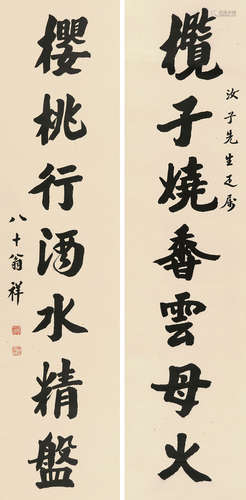 欖子燒香雲母火
汝子先生正属
櫻桃行酒水精盤
八十翁祥